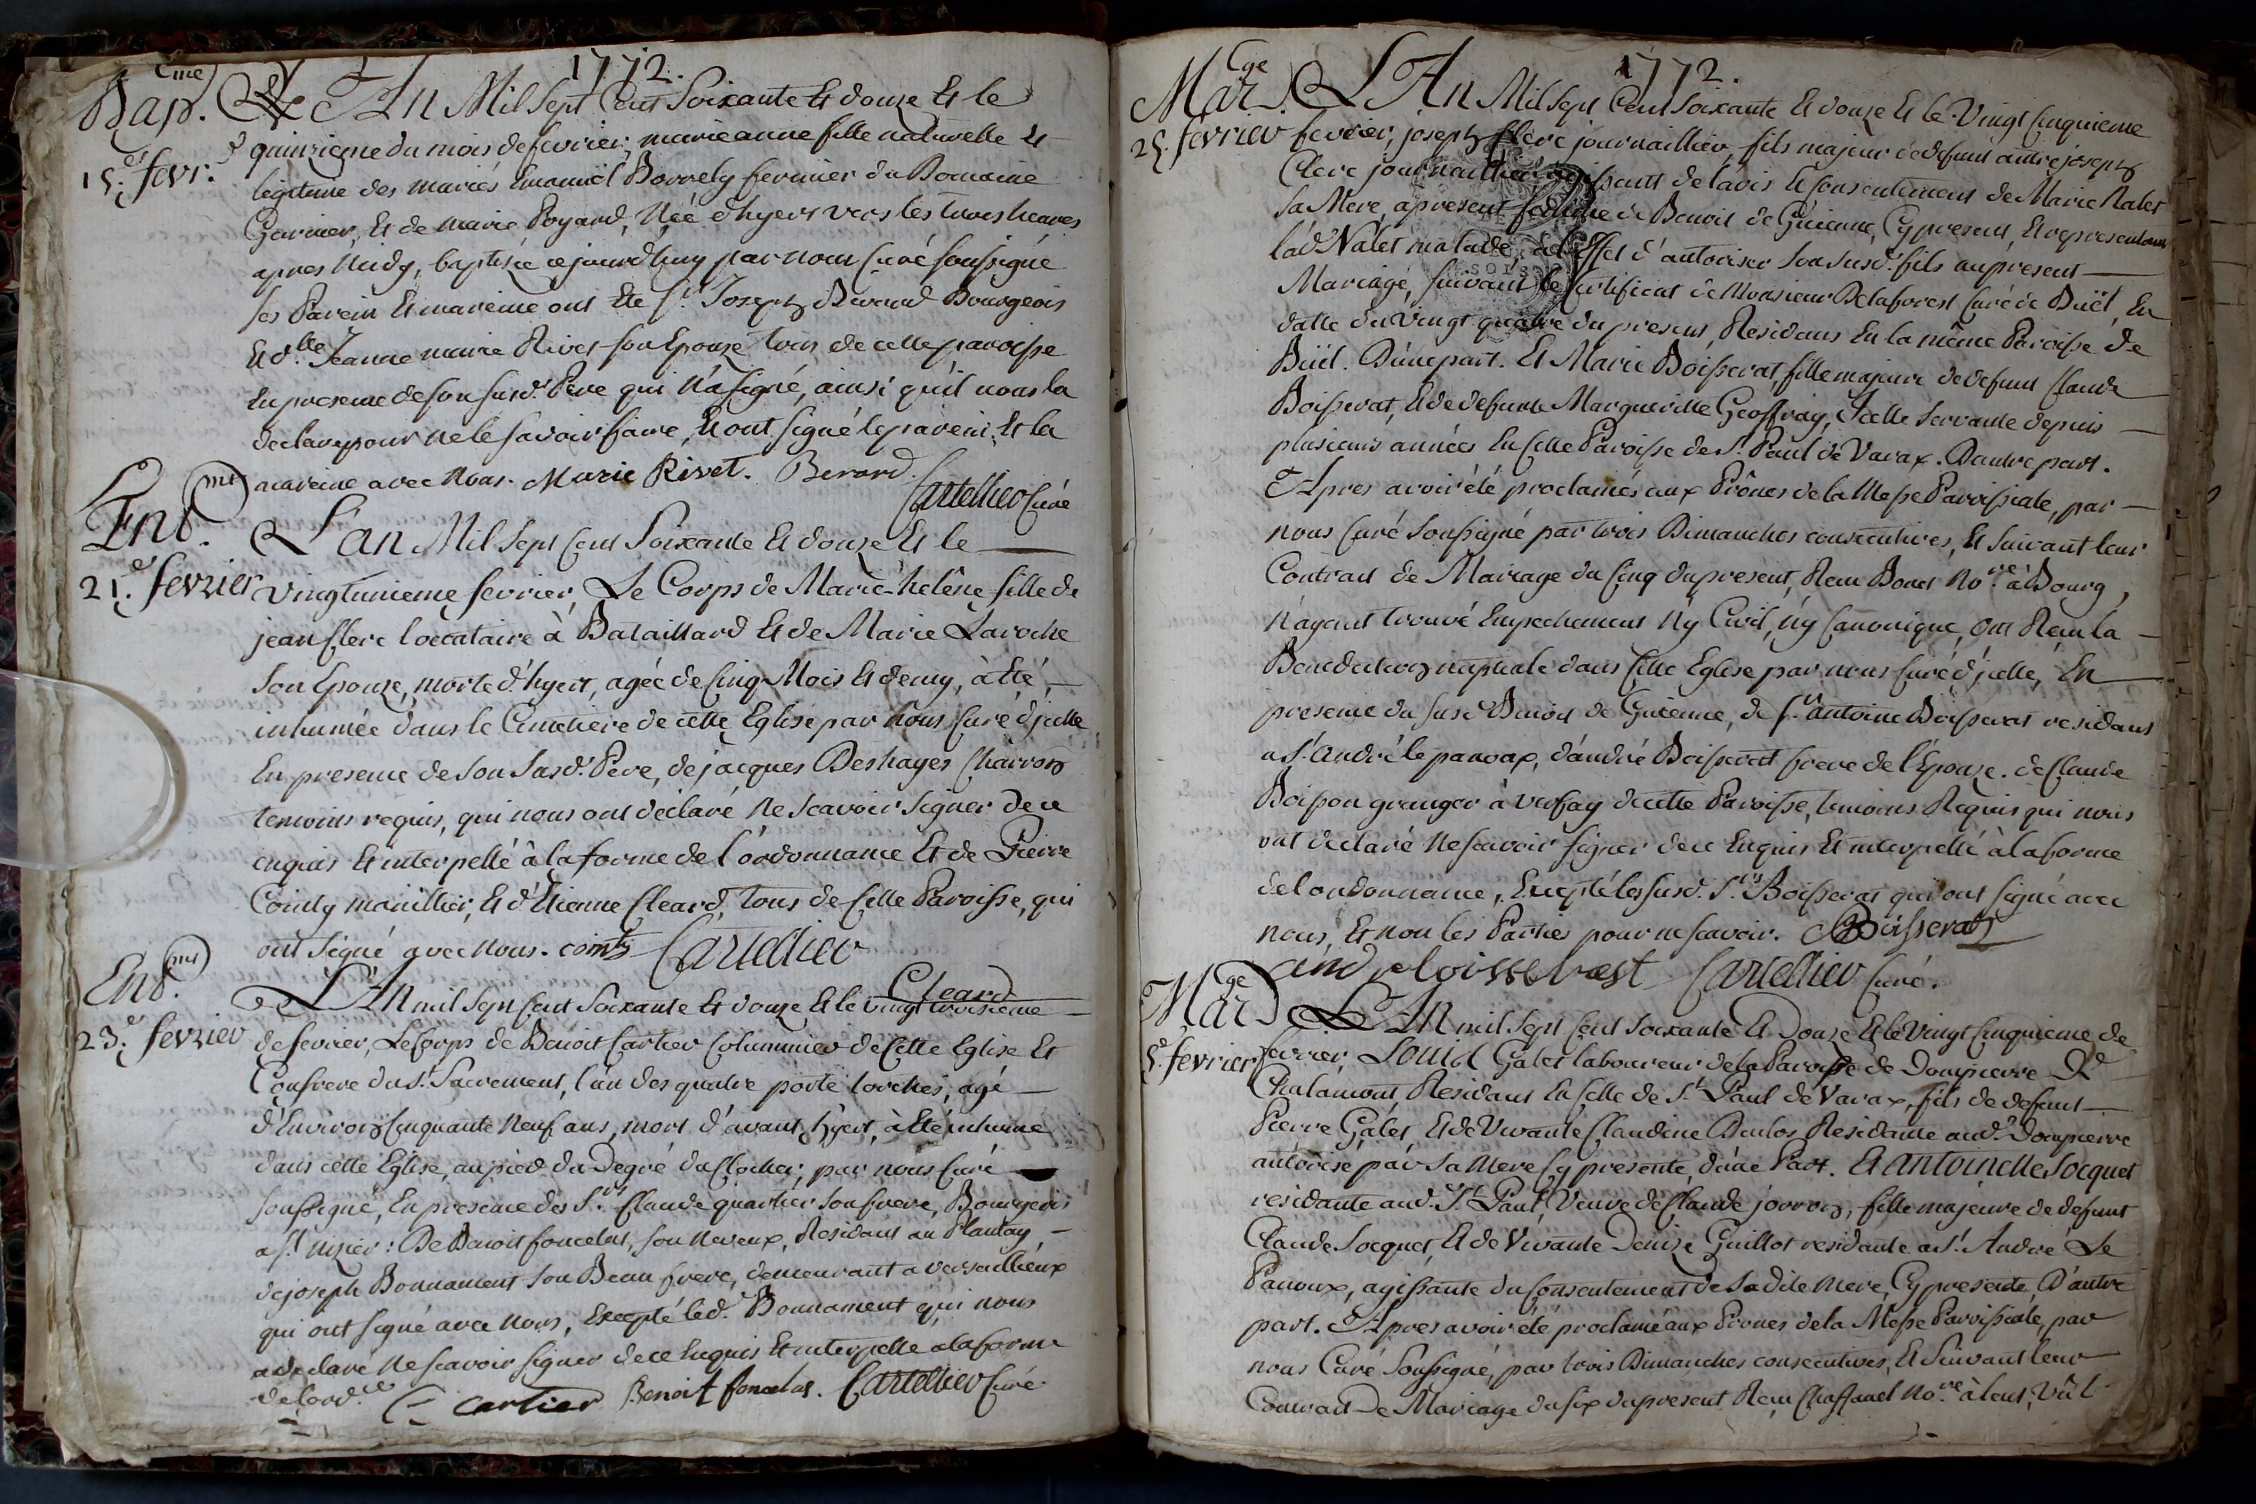 1772.
Bap.me L'An Mil Sept Cent Soixante Et douze Et le
15.e fevr.r quinzieme du mois de fevrier, marie anne fille naturelle Et
legitime des mariés Emanuel Borrely fermier du Domaine
Garnier, Et de marie Poyard, Née d'hyers vers les trois heures
apres Midy, baptisée cejourd'huy par nous Curé soussigné
ses Parein Et mareine ont Ete Sr. Joseph Berard Bourgeois
Et d.lle Jeanne marie Rivet son Epouze tous de cette paroisse
En presence de son susd. Pere qui N'a signé, ainsi qu'il nous la
declare pour ne le savoir faire, Et ont signé le parein, Et la
mareine avec Nous. Marie Rivet. Berard.
Cartellier Curé
Ent.mt L'an Mil Sept Cent Soixante Et douze Et le
21.e fevrier vingtunieme fevrier, Le Corps de Marie-helêne fille de
jean Clerc locataire à Bataillard Et de Marie Laroche
Son Epouze, morte d'hyers, agée de Cinq Mois Et demy, à été,
inhumée dans le Cimetiere de cette Eglise par Nous Curé d'jcelle
En presence de Son Susd. Pere, de jacques Deshayes Charron
temoins requis, qui nous ont declaré Ne Scavoir Signer de ce
enquis Et interpellé à la forme de l'ordonnance Et de Pierre
Cointy marillier, Et d'Etienne Cleard, tous de Cette Paroisse, qui
ont signé avec nous. cointy Cartellier
Cleard
Ent.mt L'An mil Sept Cent Soixante Et douze Et le vingt troisieme
23.e fevrier de fevrier, Le Corps de Benoit Cartier Columnier de Cette Eglise Et
Confrere du St. Sacrement, l'un des quatre porte torches, agé
d'Environ Cinquante Neuf ans, mort d'avant hyers, à Eté inhumé
dans cette Eglise, au pied du Degré du Clocher, par nous Curé
soussigné, En presence des Srs. Claude quartier son frere, Bourgeois
a St. Nizier: De Benoit foncelas, son Neveux, Residant au Plantay,
de joseph Bonnament Son Beau frere, demeurant a versaillieux
qui ont signé avec Nous, Excepté led. Bonnament qui nous
a declaré Ne Scavoir signer de ce Enquis Et interpellé a la forme
de l'ord.ce C cartier Benoit foncelas. Cartellier Curé.
1772.
Mar.ge L'An Mil Sept Cent Soixante Et douze Et le Vingt Cinquieme
25. fevrier fevrier, joseph Clerc journaillier, fils majeur de defunt autre joseph
Clerc journaillier agissant de l'avis Et Consentement de Marie Nalet
Sa Mere, a present femme de Benoit de Guienne, Cy present, Et representant
lad. Nalet malade, à l'effet d'autoriser Son Susd. fils au present
Mariage, Suivant le Certificat de Monsieur Delaforest Curé de Buët, En
datte du Vingt quatre du present, Residans En la même Paroisse de
Buët. D'une part. Et Marie Boisserat, fille majeure de defunt Claude
Boisserat, Et de defunte Margueritte Geoffray, Jcelle Servante depuis
plusieurs années En Cette Paroisse de St. Paul de Varax. D'autre part.
Apres avoir été proclamés aux Prônes de la Messe Paroissiale, par
nous Curé Soussigné par trois Dimanches consecutives, Et Suivant leur
Contract de Mariage du Cinq du present, Reçu Bonet No.re à Bourg,
N'ayant trouvé Empechement Ny Civil, Ny Canonique, Ont Reçu la
Benediction nuptiale dans Cette Eglise par nous Curé d'jcelle, En
presence du susd. Benoit de Guienne, de Sr. antoine Boisserat residant
a St. André le panoux, d'andré Boisserat frere de l'Epouze. de Claude
Boisson granger à Verfay de cette Paroisse, temoins Requis qui nous
ont declaré Ne Scavoir Signer de ce Enquis Et interpellé à la forme
de l'ordonnance, Excepté les susd. Srs. Boisserat qui ont signé avec
nous, Et non les Parties pour ne scavoir. Boisserat
Cartellier Curé.
Mar.ge L'An mil Sept Cent Soixante Et Douze Et le Vingt Cinquieme de
fevrier fevrier, Louis Galet laboureur de la Paroisse de Dompierre De
Chalamont, Residant En Celle de St. Paul de Varax, fils de defunt
Pierre Galet, Et de Vivante Claudine Buclos Residante aud. Dompierre
autorisé par Sa Mere Cy presente, d'une Part. Et Antoinette Socquet
residante aud. St. Paul, Veuve de Claude jorron, fille majeure de défunt
Claude Socquet, Et de Vivante Denize Guillot residante a St. André Le
Panoux, agissante du Consentement de Sa dite mere, Cy presente, D'autre
part. Apres avoir été proclamé aux Prones de la Messe Paroissiale, par
nous Curé Soussigné, par trois Dimanches consecutives, Et Suivant leur
Contract de Mariage du six du present Reçu Chaffanel No.re à lent, Vû l